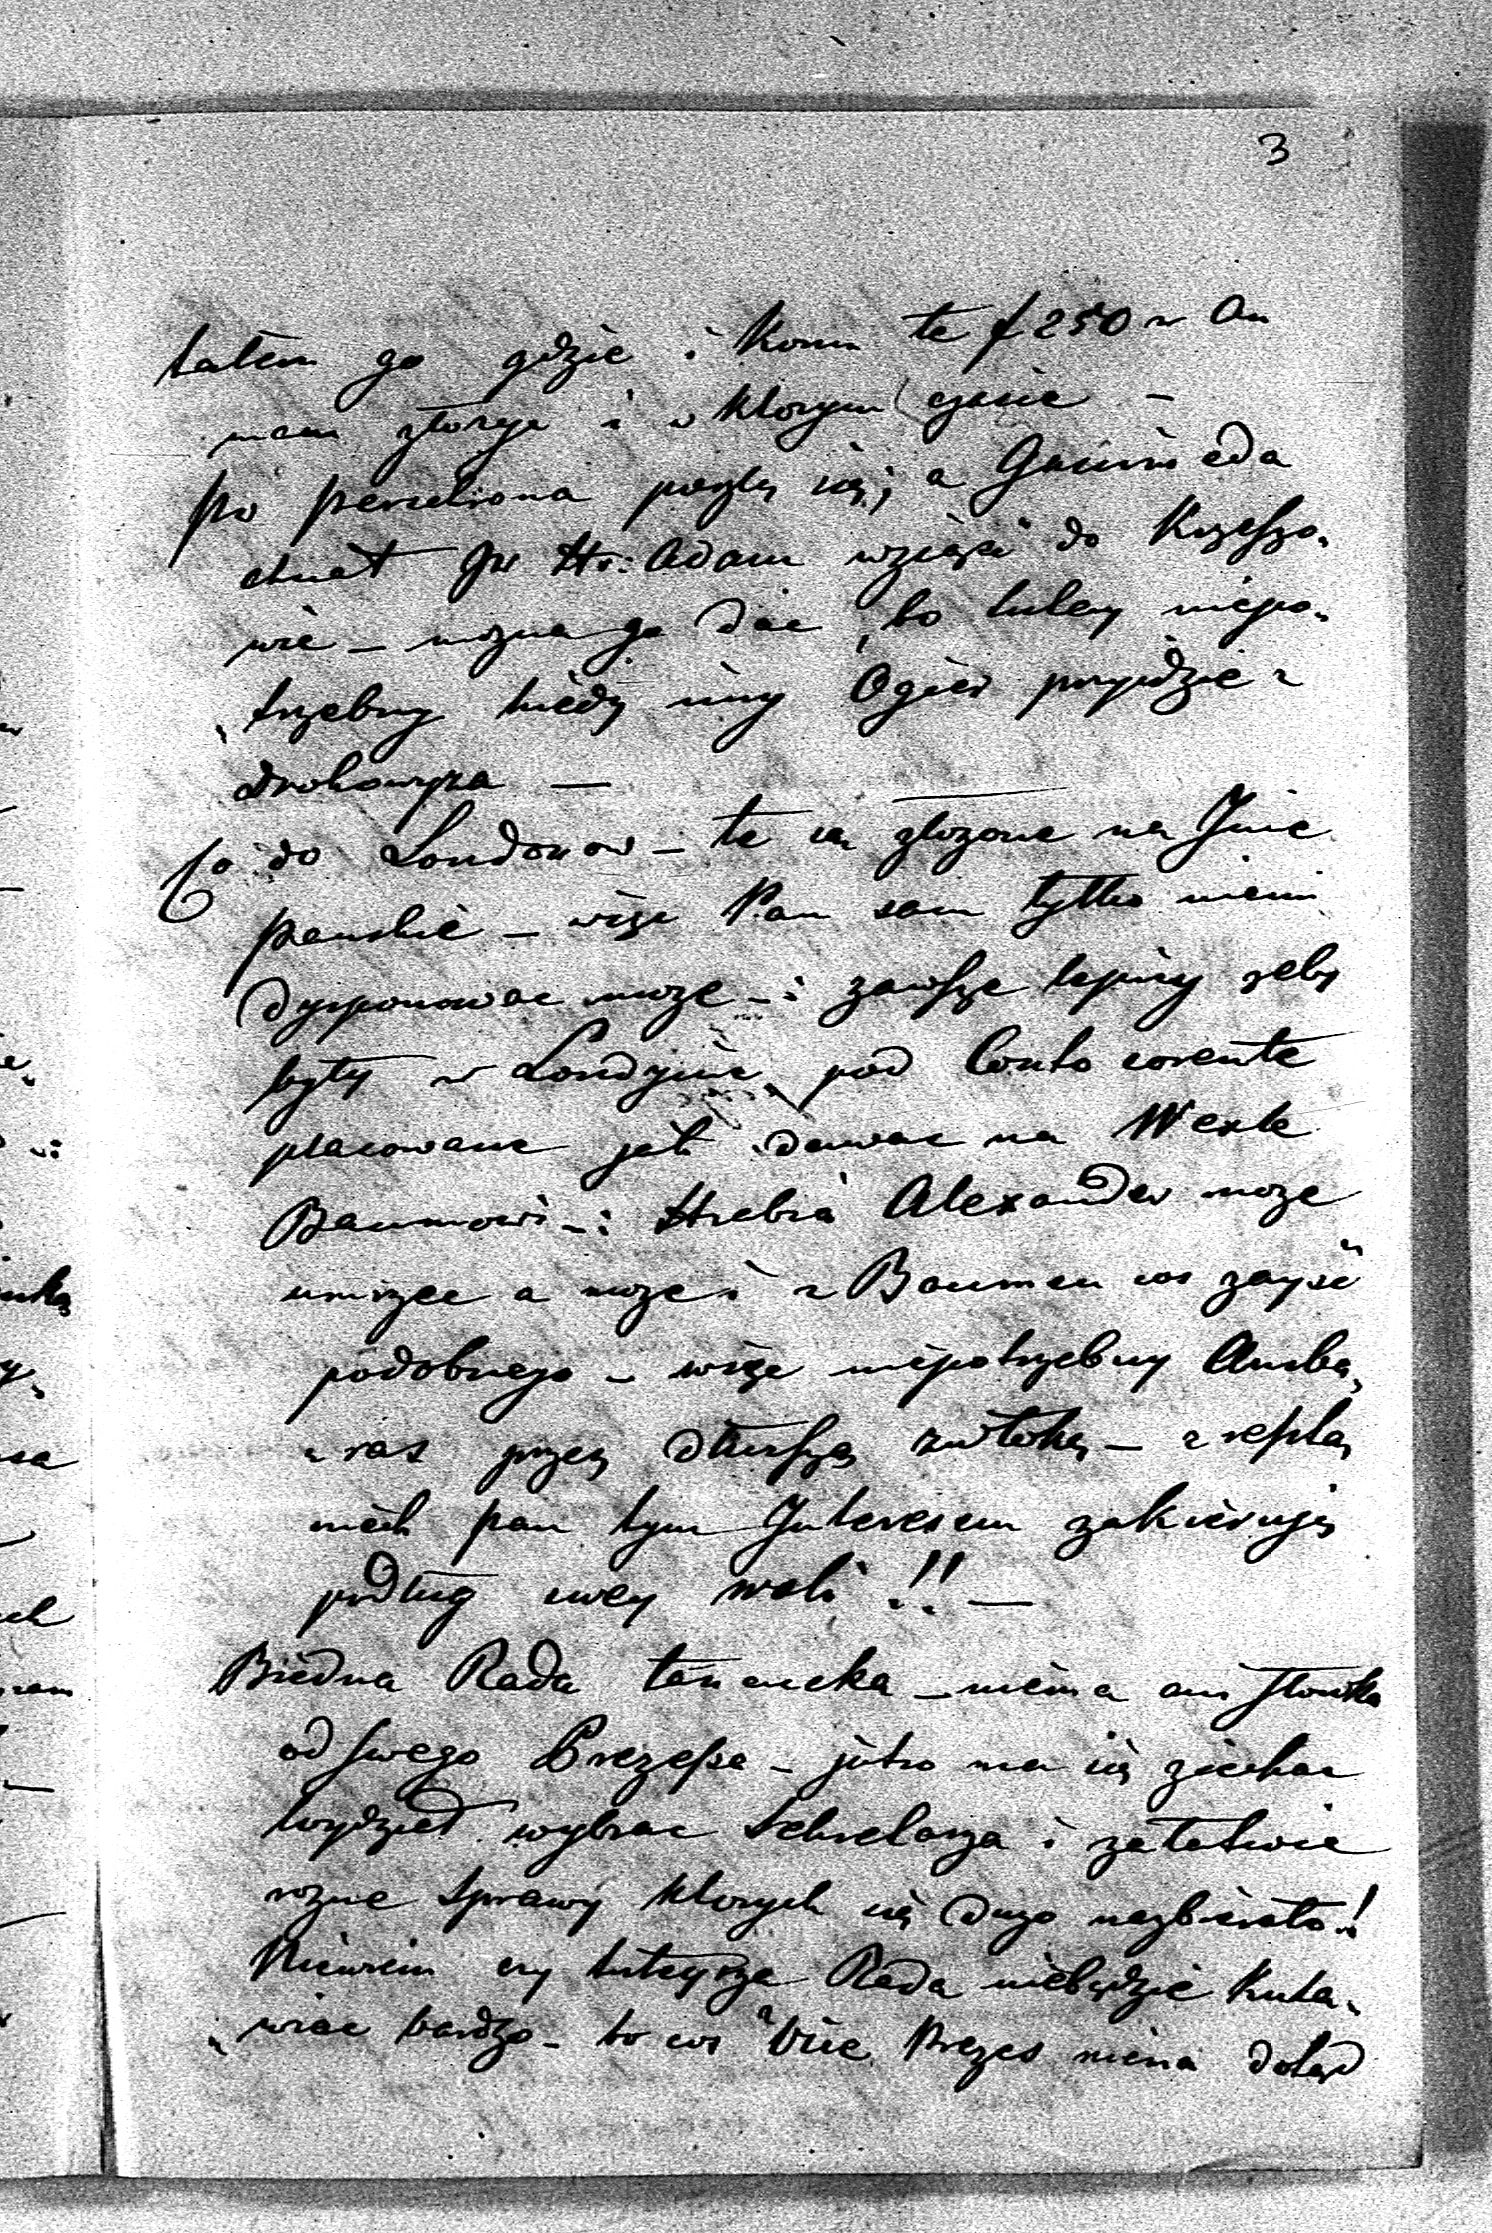 3
tałem go gdzie i komu te f 250 w an
mam złożyć i w ktorym czasie –
po Percherona poszlę się; a Ganimeda
chciał JW Hr: Adam wziąść do Krzeszo„
wic – można go dać, bo tutey niepo„
„trzebny kiedy inny Ogier przyidzie z
Drohowyża —
Co do Londonow – te są złożone na Imie
pańskie – więc Pan sam tylko niemi
dysponować może – i zawsze lepiey żeby
były w Londynie pod Conto corente
pracowane jak dawać na Wexle
Baumowi – : Hrabia Alexander może
umrzeć a może i z Baumem cos zayść
podobnego – więc niepotrzebny Amba„
„ras przez dłuszszą zwłokę – z resztą
niech pan tym Interesem zakieruję
podług swey woli !! —
Biedna Rada łańcucka – niema ani słowka
od swego Prezessa – jutro ma się ziechać
wydział wybrać Sekretarza i załatwić
rożne sprawy ktorych się dużo nazbierało!
Niewiem czy tuteysza Rada niebędzie kula„
„wiać bardzo – bo cos Vice Prezes niema dotąd